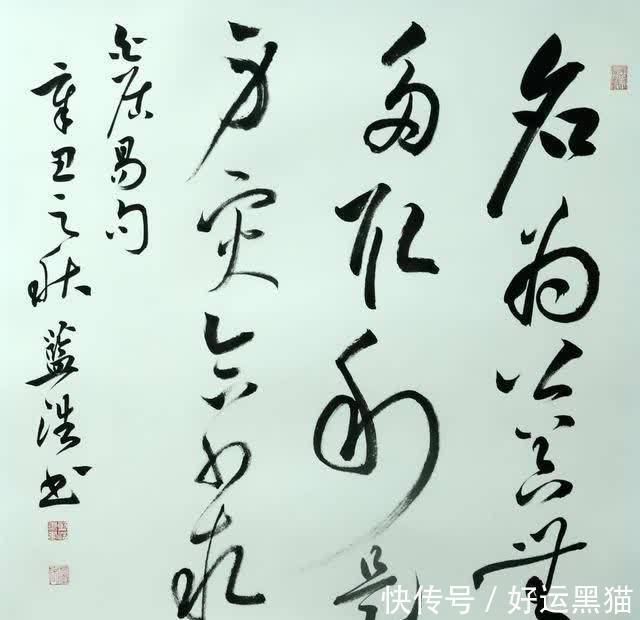 名为公器無
多取利是
身灾合少求
白居易句
辛丑之秋藍浩书
快传号 / 好运黑猫